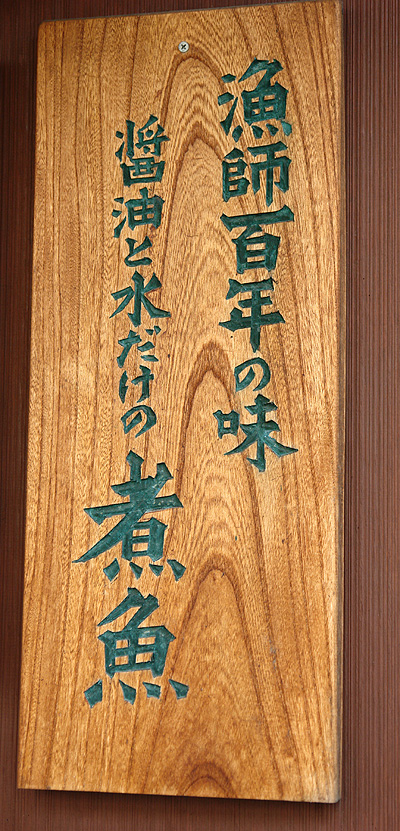 漁師百年の味
醤油と水だけの煮魚